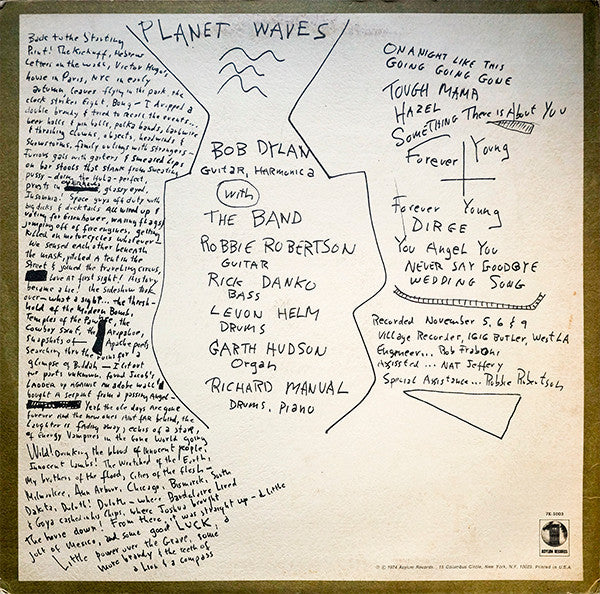 PLANET WAVES
Back to the Starting
Point! The Kickoff, Hebrew
Letters on the wall, Victor Hugo's
house in Paris, NYC in early
autumn, leaves flying in the park, the
clock strikes Eight, Bong— I dropped a
double brandy & tried to recall the events...
beer halls & pin balls, polka bands, barbwire
& thrashing clowns, objects, headwinds &
Snowstorms, family outings with strangers—
Furious gals with garters & smeared Lips
on bar stools that stank from sweating
pussy— doing the Hula— perfect,
priests in glassy eyed,
Insomnia! Space guys off duty with
big dicks & ducktails All wired up &
voting for Eisenhower, waving flags &
jumping off of fire engines, getting
killed on motorcycles whatever—
We sensed each other beneath
the mask, pitched a tent in the
Street & joined the traveling circus,
Love at first sight! History
became a lie! the sideshow took
over— what a sight... the thresh-
hold of the Modern Bomb,
Temples of the Pawnee, the
Cowboy Saint, the Arapahoe,
Snapshots of Apache poets
Searching thru the ruins for a
glimpse of Buddah— I lit out
for parts unknown, found Jacob's
Ladder up against an adobe wall &
bought a serpent from a passing Angel—
Yeah the ole days are gone
forever And the new ones Aint fAR behind, the
Laughter is fading away, echos of a star,
of Energy Vampires in the Gone World going
Wild! Drinking the blood of innocent people,
Innocent Lambs! The Wretched of the Earth,
My brothers of the flood, Cities of the flesh—
Milwaukee, Ann Arbor, Chicago, Bismarck, South
Dakota, Duluth! Duluth— where Baudelaire Lived
& Goya cashed in his Chips, where Joshua brought
The house down! From there, it was straight up— a Little
jolt of Mexico, and some good LUCK, a
Little power over the Grave, some
more brandy & the teeth of
a Lion & a compass
BOB DYLAN
Guitar, Harmonica
with
THE BAND
ROBBIE ROBERTSON
GUITAR
RICK DANKO
BASS
LEVON HELM
DRUMS
GARTH HUDSON
Organ
RICHARD MANUAL
DRUMS, PIANO
ON A NIGHT LIKE THIS
GOING GOING GONE
TOUGH MAMA
HAZEL
SOMETHING There is About You
Forever Young
Forever Young
DIRGE
You Angel You
NEVER SAY GOODBYE
WEDDING SONG
Recorded November 5, 6 & 9
Village Recorder, 1616 Butler, West LA
Engineer... Rob Fraboni
Assisted... NAT Jeffery
Special Assistance... Robbie Robertson
7E-1003
ASYLUM RECORDS
© ℗ 1974 Asylum Records, 15 Columbus Circle, New York, N.Y. 10023. Printed in U.S.A.